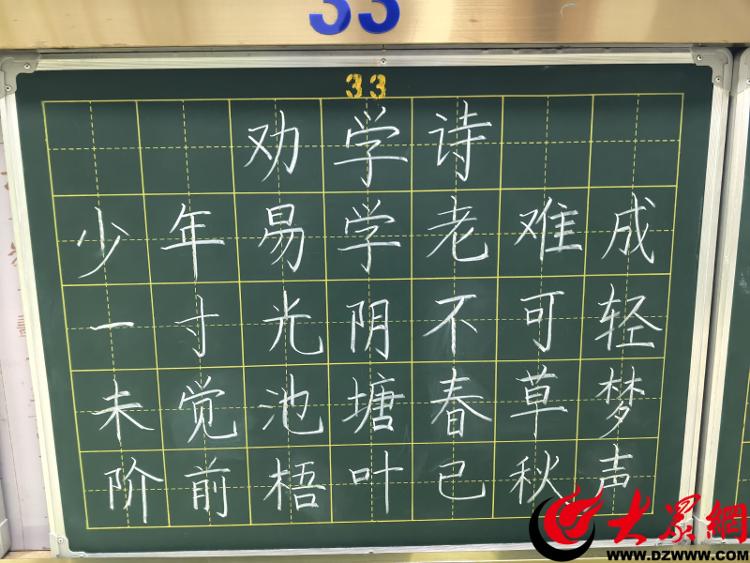 33
33
劝学诗
少年易学老难成
一寸光阴不可轻
未觉池塘春草梦
阶前梧叶已秋声
大眾網
WWW.DZWWW.COM